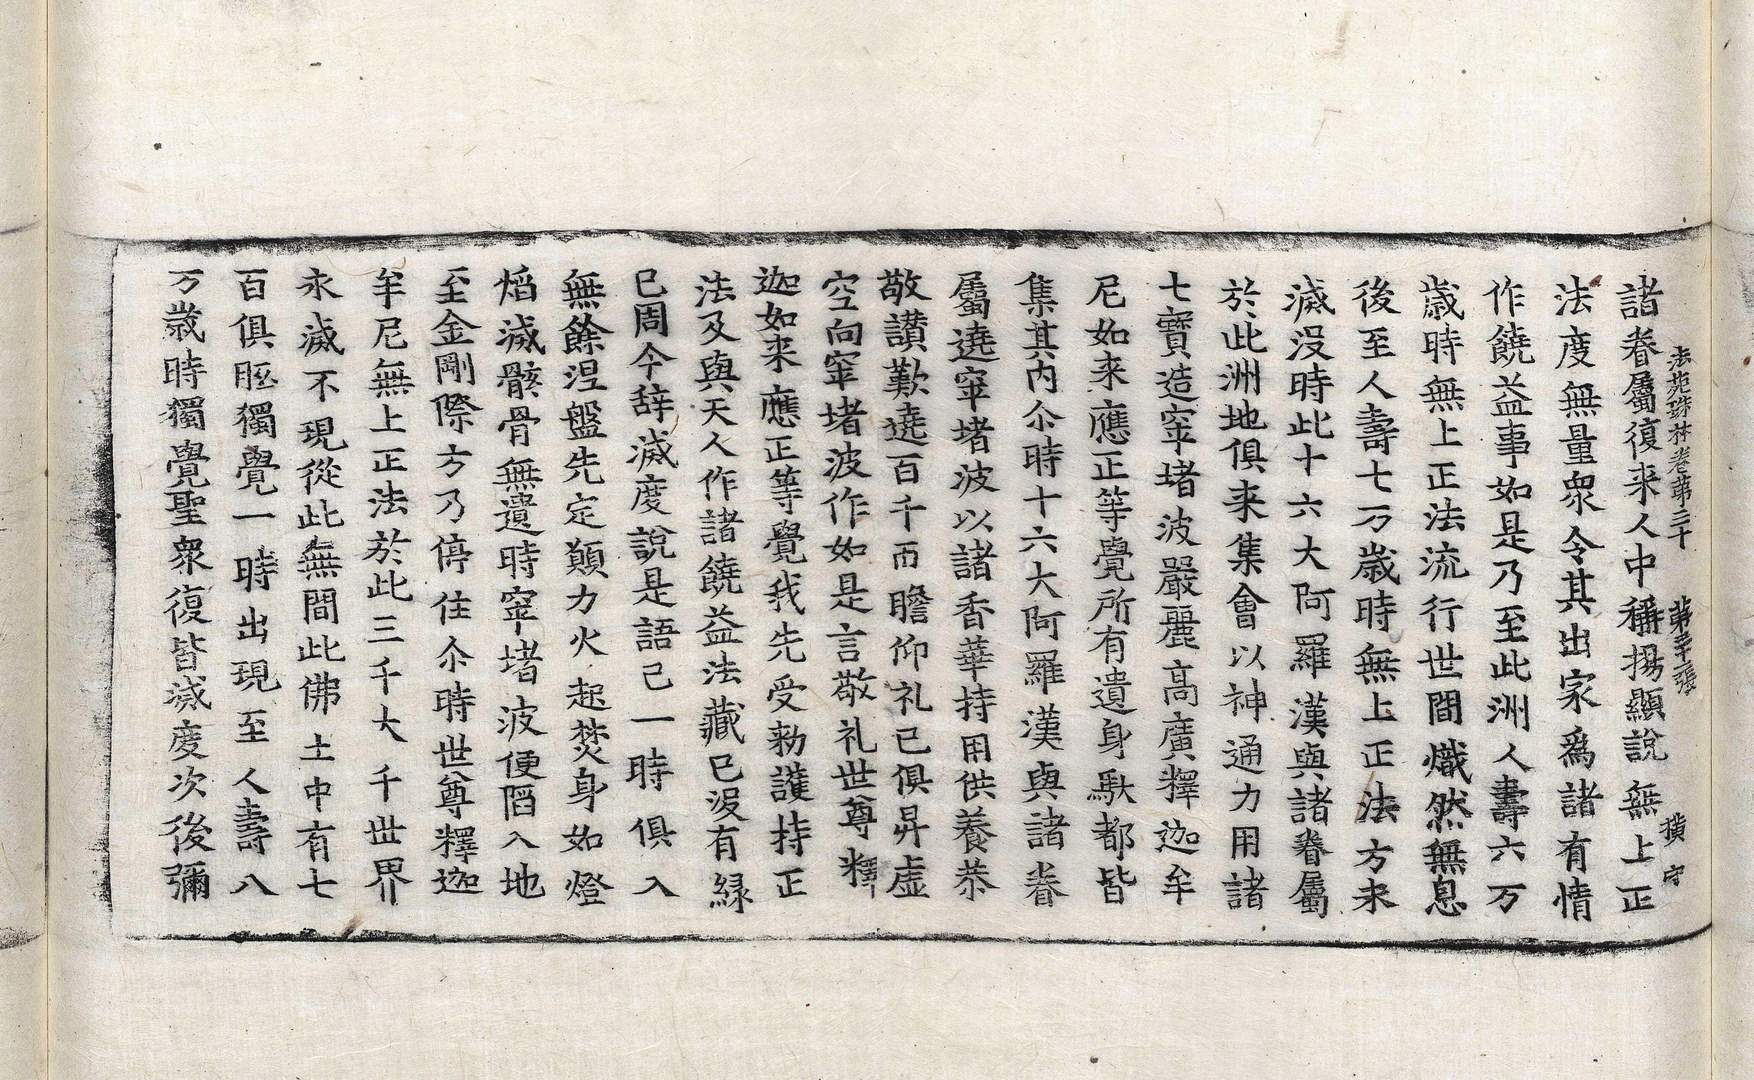 法苑珠林卷第三十　第三十二張　橫守
諸眷屬復来人中稱揚顯說無上正
法度無量衆令其出家爲諸有情
作饒益事如是乃至此洲人壽六万
歲時無上正法流行世間熾然無息
後至人壽七万歲時無上正法方来
滅没時此十六大阿羅漢與諸眷屬
於此洲地俱来集會以神通力用諸
七寶造窣堵波嚴麗高廣釋迦牟
尼如来應正等覺所有遺身馱都皆
集其内尒時十六大阿羅漢與諸眷
屬遶窣堵波以諸香華持用供養恭
敬讃歎遶百千帀瞻仰礼已俱昇虛
空向窣堵波作如是言敬礼世尊釋
迦如来應正等覺我先受勑護持正
法及與天人作諸饒益法藏已沒有緣
已周今辝滅度說是語已一時俱入
無餘涅盤先定願力火起焚身如燈
焰滅骸骨無遺時窣堵波便陷入地
至金剛際方乃停住尒時世尊釋迦
牟尼無上正法於此三千大千世界
永滅不現從此無間此佛土中有七
百俱胝獨覺一時出現至人壽八
万歲時獨覺聖衆復皆滅度次後彌